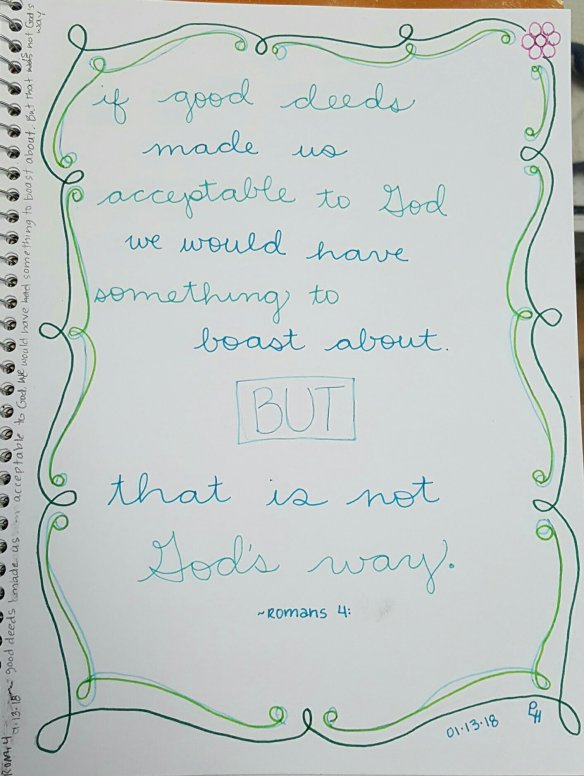 if good deeds
made us
acceptable to God
we would have
something to
boast about.
BUT
that is not
God's way.
~Romans 4:
01.13.18
good deeds made us acceptable to God. We would have had something to boast about. But that was not God's way